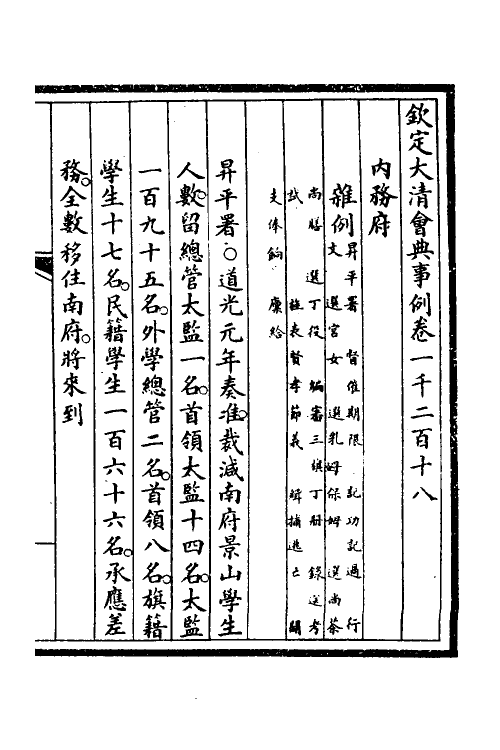 欽定大清會典事例卷一千二百十八
內務府
雜例 昇平署 督催期限 記功記過 行
文 選宮女 選乳姆保姆 選尚茶
尚膳 選丁役 編審三旗丁册 錄送考
試 旌表賢孝節義 緝捕逃亡 關
支俸餉 廩給
昇平署○道光元年奏准裁減南府景山學生
人數留總管太監一名首領太監十四名太監
一百九十五名外學總管二名首領八名旗籍
學生十七名民籍學生一百六十六名承應差
務全數移住南府將來到